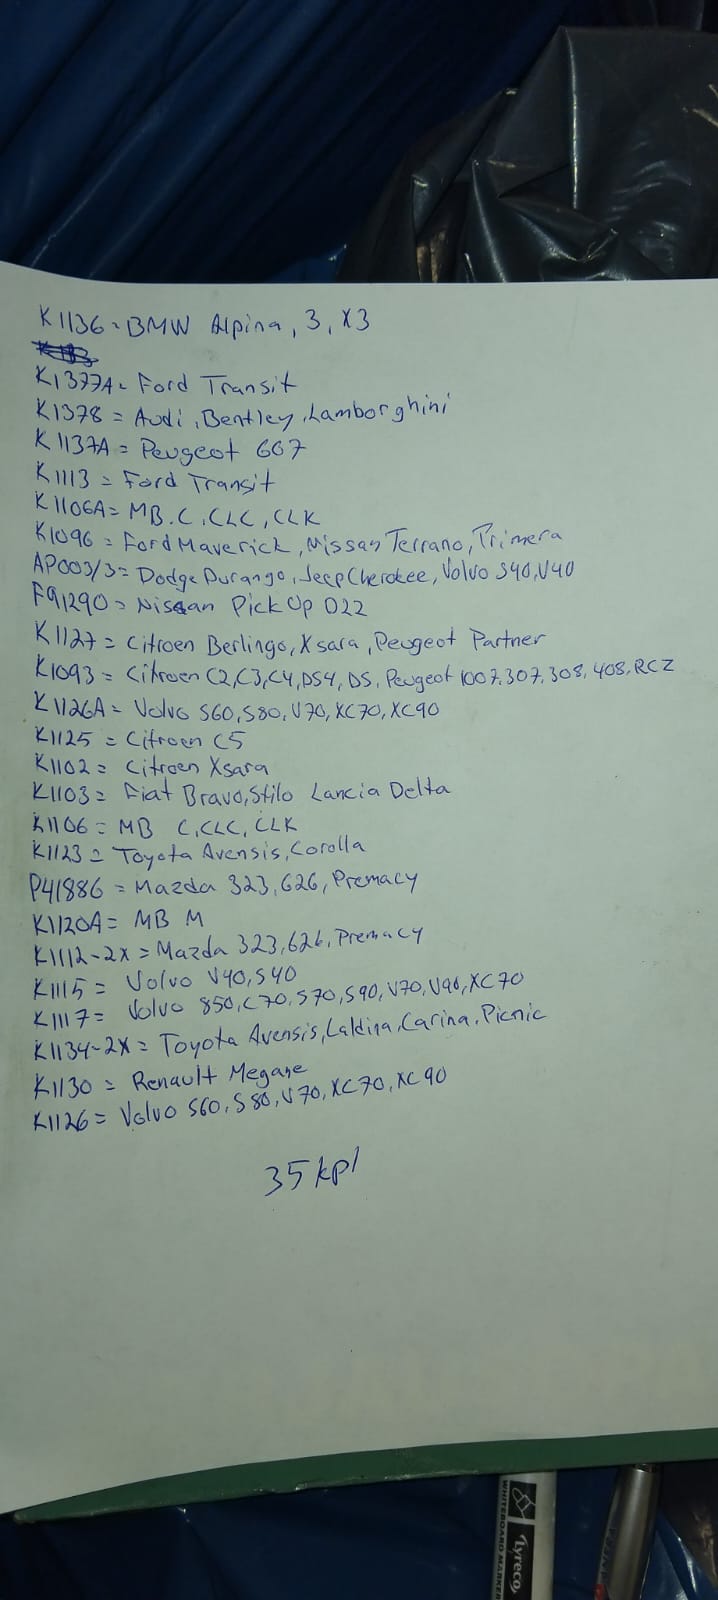 K1136 = BMW Alpina, 3, X3
K1377A = Ford Transit
K1378 = Audi, Bentley, Lamborghini
K1137A = Peugeot 607
K1113 = Ford Transit
K1106A = MB. C, CLC, CLK
K1096 = Ford Maverick, Nissan Terrano, Primera
AP003/3 = Dodge Durango, Jeep Cherokee, Volvo S40, V40
FA1290 = Nissan Pick Up D22
K1127 = Citroen Berlingo, Xsara, Peugeot Partner
K1093 = Citroen C2, C3, C4, DS4, DS, Peugeot 1007, 307, 308, 408, RCZ
K1126A = Volvo S60, S80, V70, XC70, XC90
K1125 = Citroen C5
K1102 = Citroen Xsara
K1103 = Fiat Bravo, Stilo Lancia Delta
K1106 = MB C, CLC, CLK
K1123 = Toyota Avensis, Corolla
P41886 = Mazda 323, 626, Premacy
K1120A = MB M
K1112-2X = Mazda 323, 626, Premacy
K1115 = Volvo V40, S40
K1117 = Volvo 850, C70, S70, S90, V70, V90, XC70
K1134-2X = Toyota Avensis, Caldina, Carina, Picnic
K1130 = Renault Megane
K1126 = Volvo S60, S80, V70, XC70, XC90
35 kpl
WHITEBOARD MARKER
Lyreco